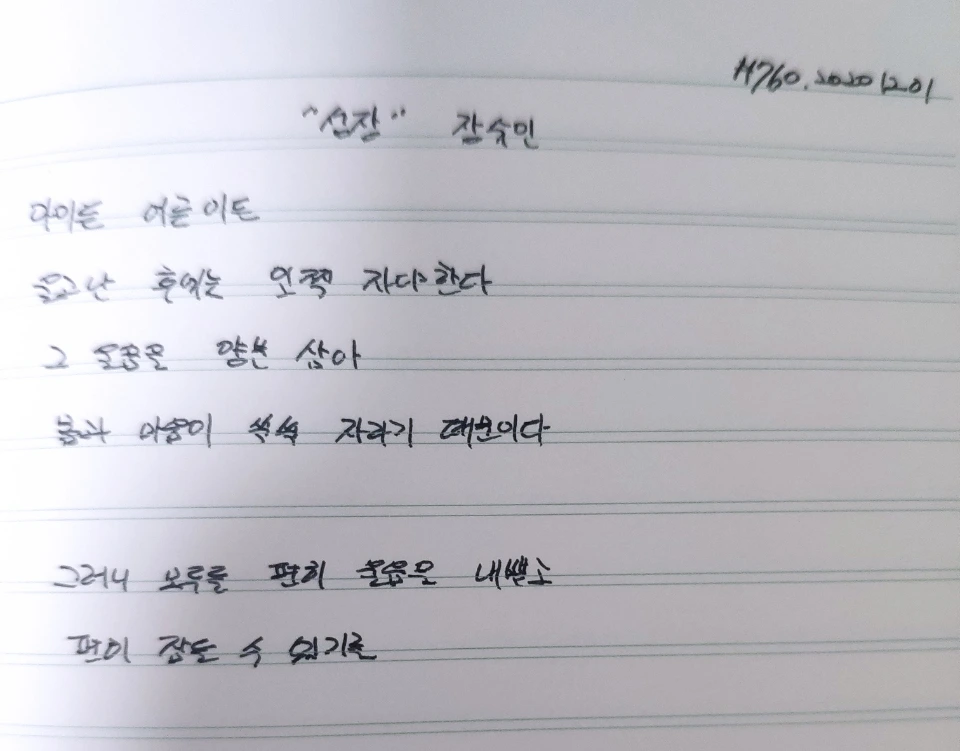 H760. 20201201
"성장" 장수인
아이든 어른이든
울고난 후에는 훌쩍 자다한다
그 울음을 양분 삼아
몸과 마음이 쑥쑥 자라기 때문이다
그러니 모두들 편히 울음을 내뱉고
편히 잠들 수 있기를